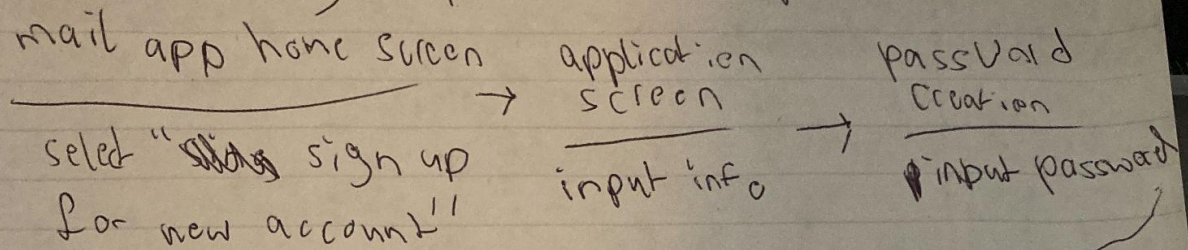 mail app home screen → application screen → password creation
select "sign up for new account"
input info
input password